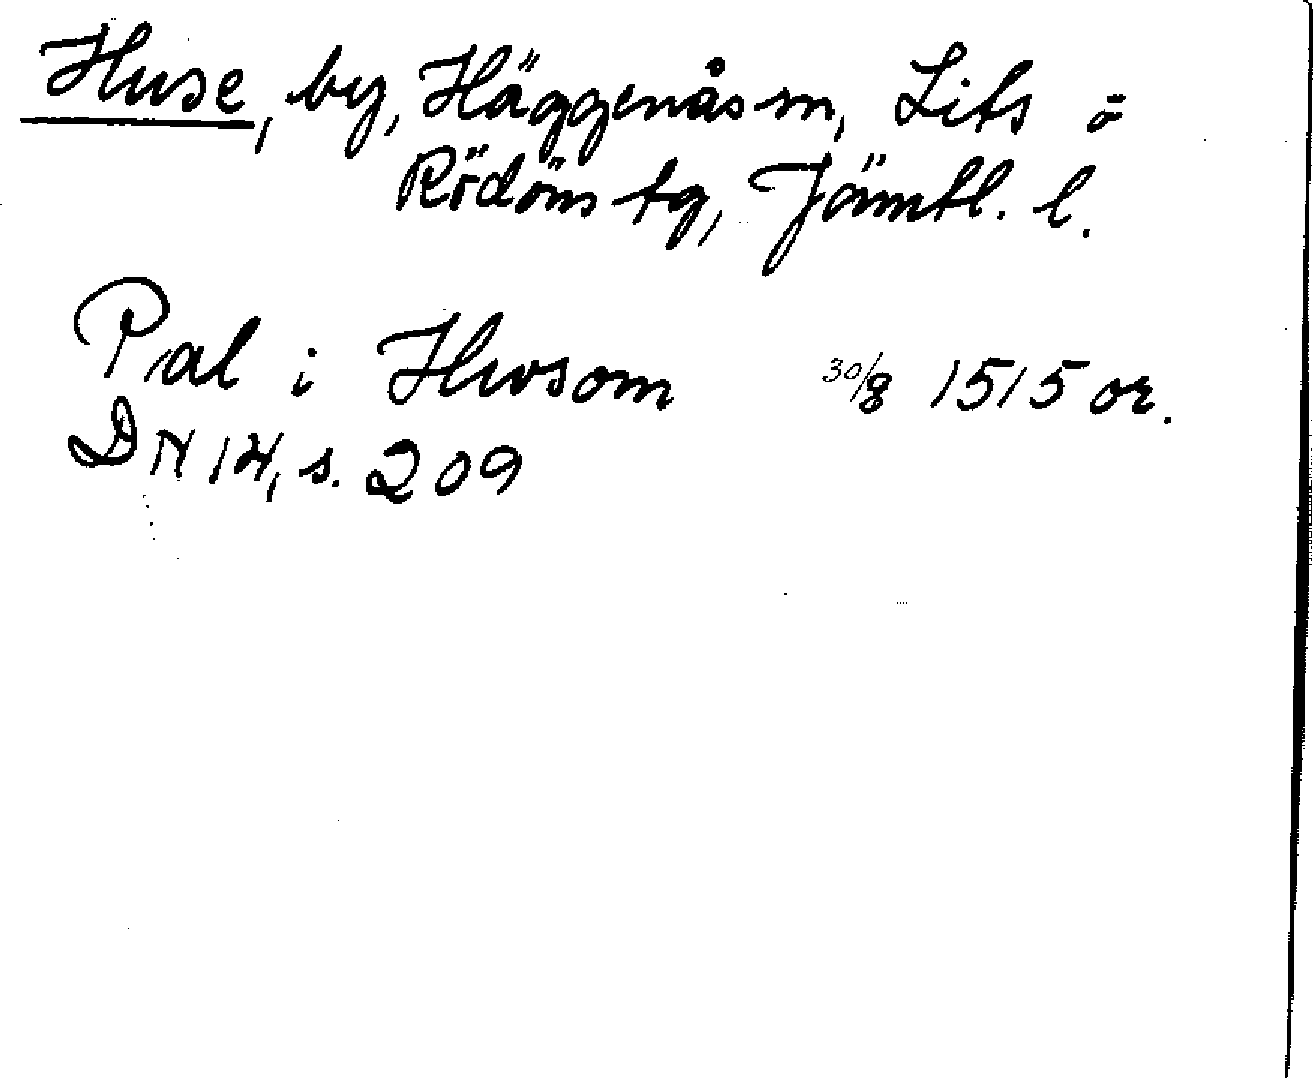 Huse, by, Häggenås sn, Lits o
Rödöns tg, Jämtl. l.
Pal i Hwsom 30/8 1515 or.
DN 14, s. 209